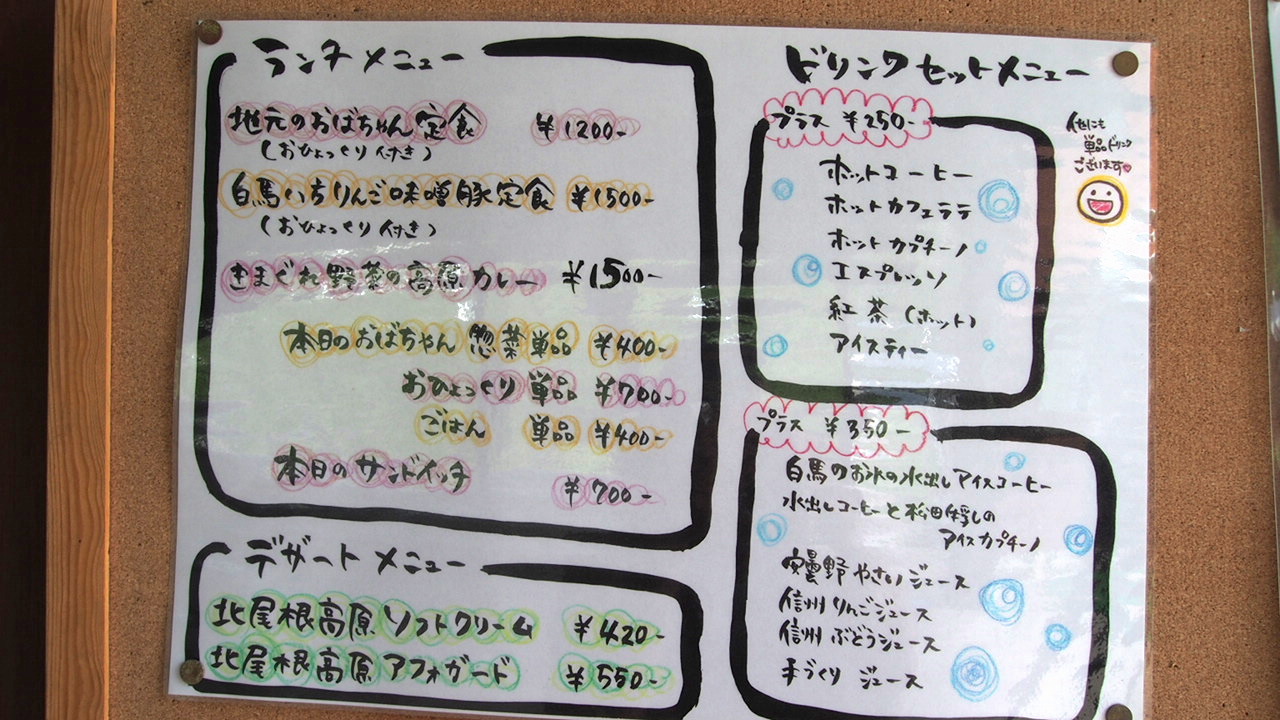 ランチメニュー
地元のおばちゃん定食 ¥1200-
(おひょっくり付き)
白馬いちりんご味噌豚定食 ¥1500-
(おひょっくり付き)
きまぐれ野菜の高原カレー ¥1500-
本日のおばちゃん惣菜単品 ¥400-
おひょっくり 単品 ¥700-
ごはん 単品 ¥400-
本日のサンドイッチ
¥700-
デザートメニュー
北尾根高原ソフトクリーム ¥420-
北尾根高原アフォガード ¥550-
ドリンクセットメニュー
プラス ¥250-
ホットコーヒー
ホットカフェラテ
ホットカプチーノ
エスプレッソ
紅茶(ホット)
アイスティー
他にも
単品ドリンク
ございます♥
プラス ¥350-
白馬のお水の水出しアイスコーヒー
水出しコーヒーと
アイスカプチーノ
安曇野やさいジュース
信州りんごジュース
信州ぶどうジュース
手づくりジュース